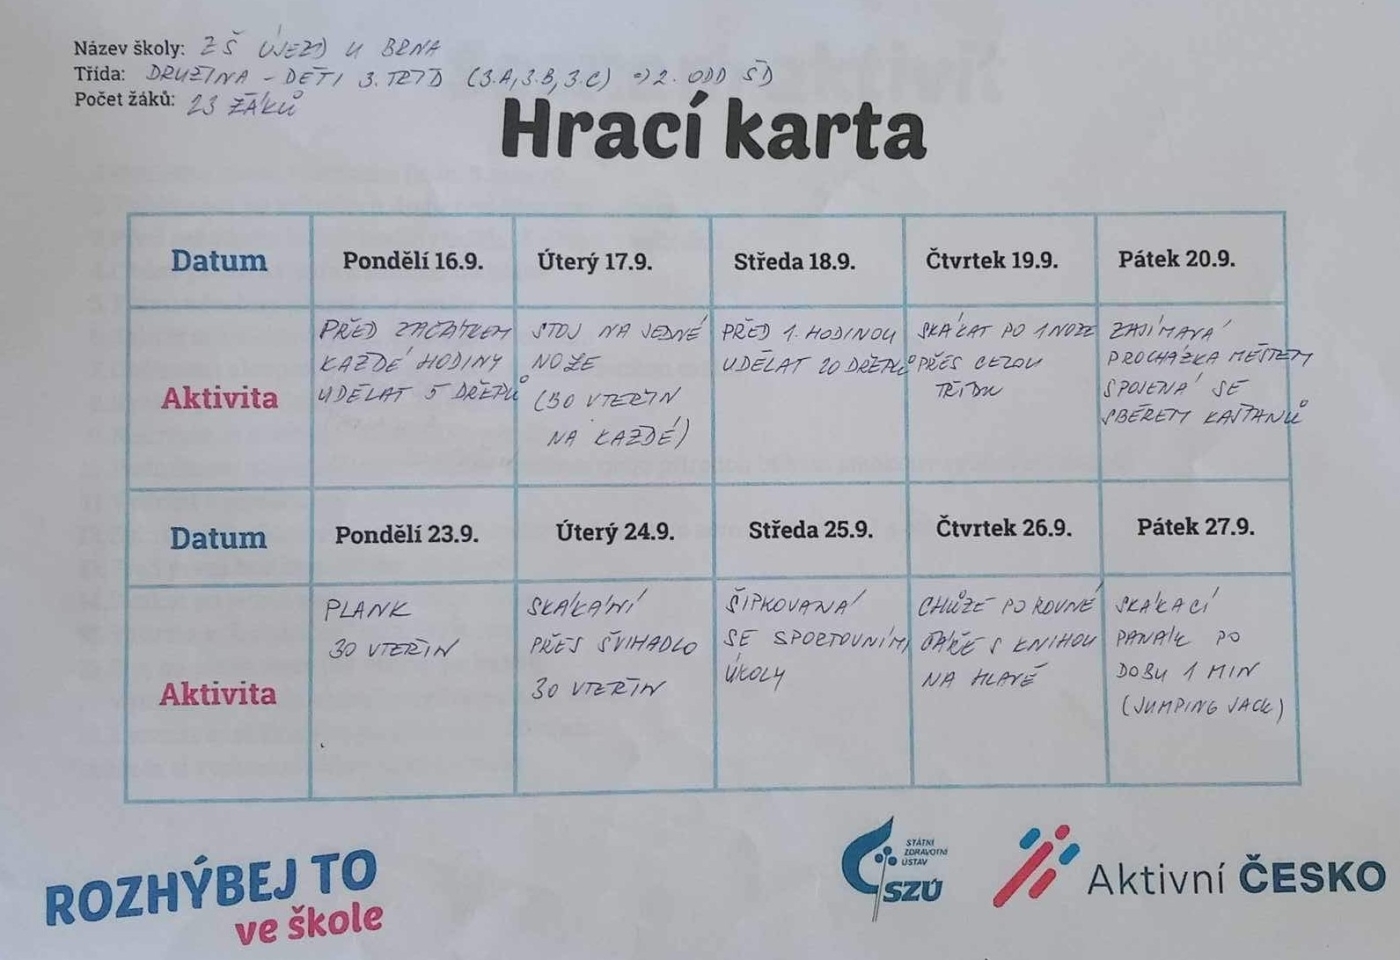 Název školy: ZŠ ÚJEZD U BRNA
Třída: DRUŽINA - DĚTI 3. TŘÍD (3.A, 3.B, 3.C) => 2. ODD ŠD
Počet žáků: 23 ŽÁKŮ
Hrací karta
Datum
Pondělí 16.9.
Úterý 17.9.
Středa 18.9.
Čtvrtek 19.9.
Pátek 20.9.
Aktivita
PŘED ZAČÁTKEM
KAŽDÉ HODINY
UDĚLAT 5 DŘEPŮ
STOJ NA JEDNÉ
NOZE
(30 VTEŘIN
NA KAŽDÉ)
PŘED 1. HODINOU
UDĚLAT 20 DŘEPŮ
SKÁKAT PO 1 NOZE
PŘES CELOU
TŘÍDU
ZAJÍMAVÁ
PROCHÁZKA MĚSTEM
SPOJENÁ SE
SBĚREM KAŠTANŮ
Datum
Pondělí 23.9.
Úterý 24.9.
Středa 25.9.
Čtvrtek 26.9.
Pátek 27.9.
Aktivita
PLANK
30 VTEŘIN
SKÁKÁNÍ
PŘES ŠVIHADLO
30 VTEŘIN
ŠIPKOVANÁ
SE SPORTOVNÍMI
ÚKOLY
CHŮZE PO ROVNÉ
ČÁŘE S KNIHOU
NA HLAVĚ
SKÁKACÍ
PANÁK PO
DOBU 1 MIN
(JUMPING JACK)
ROZHÝBEJ TO
ve škole
STÁTNÍ
ZDRAVOTNÍ
ÚSTAV
SZÚ
Aktivní ČESKO